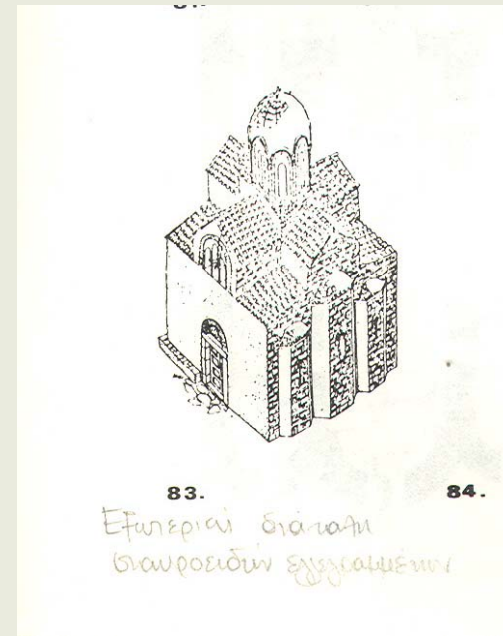 83.
84.
Εξωτερική διάταξη
σταυροειδών εγγεγραμμένων